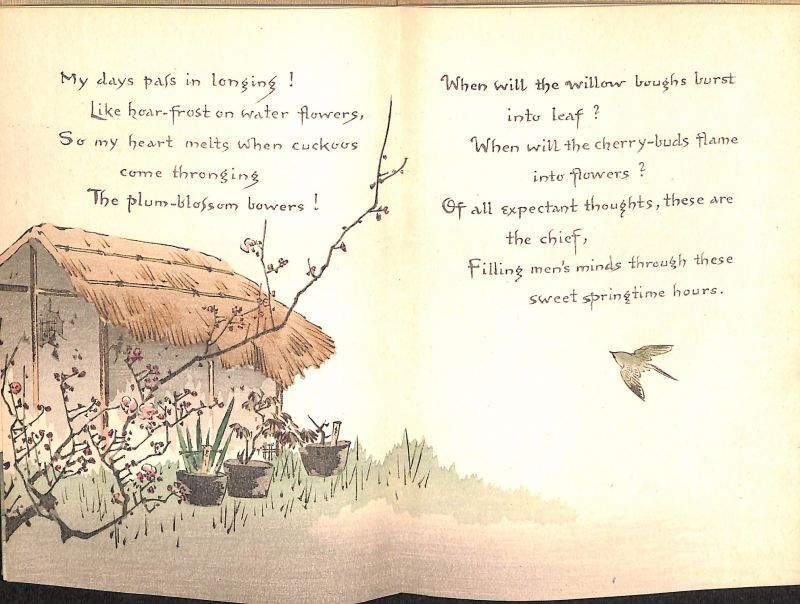 My days paſs in longing !
Like hoar-frost on water flowers,
So my heart melts when cuckoos
come thronging
The plum-bloſsom bowers !
When will the willow boughs burst
into leaf ?
When will the cherry-buds flame
into flowers ?
Of all expectant thoughts, these are
the chief,
Filling men's minds through these
sweet springtime hours.